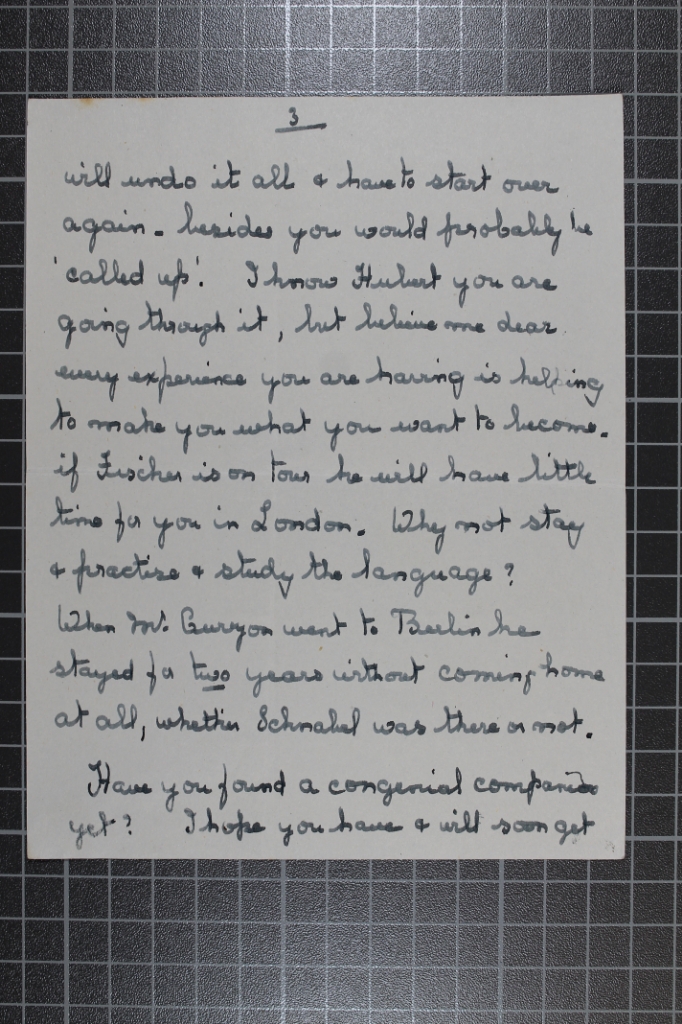 3
will undo it all & have to start over
again. besides you would probably be
'called up'. I know Hubert you are
going through it, but believe me dear
every experience you are having is helping
to make you what you want to become.
if Fischer is on tour he will have little
time for you in London. Why not stay
& practise & study the language?
When Mr. Curzon went to Berlin he
stayed for two years without coming home
at all, whether Schnabel was there or not.
Have you found a congenial companion
yet? I hope you have & will soon get